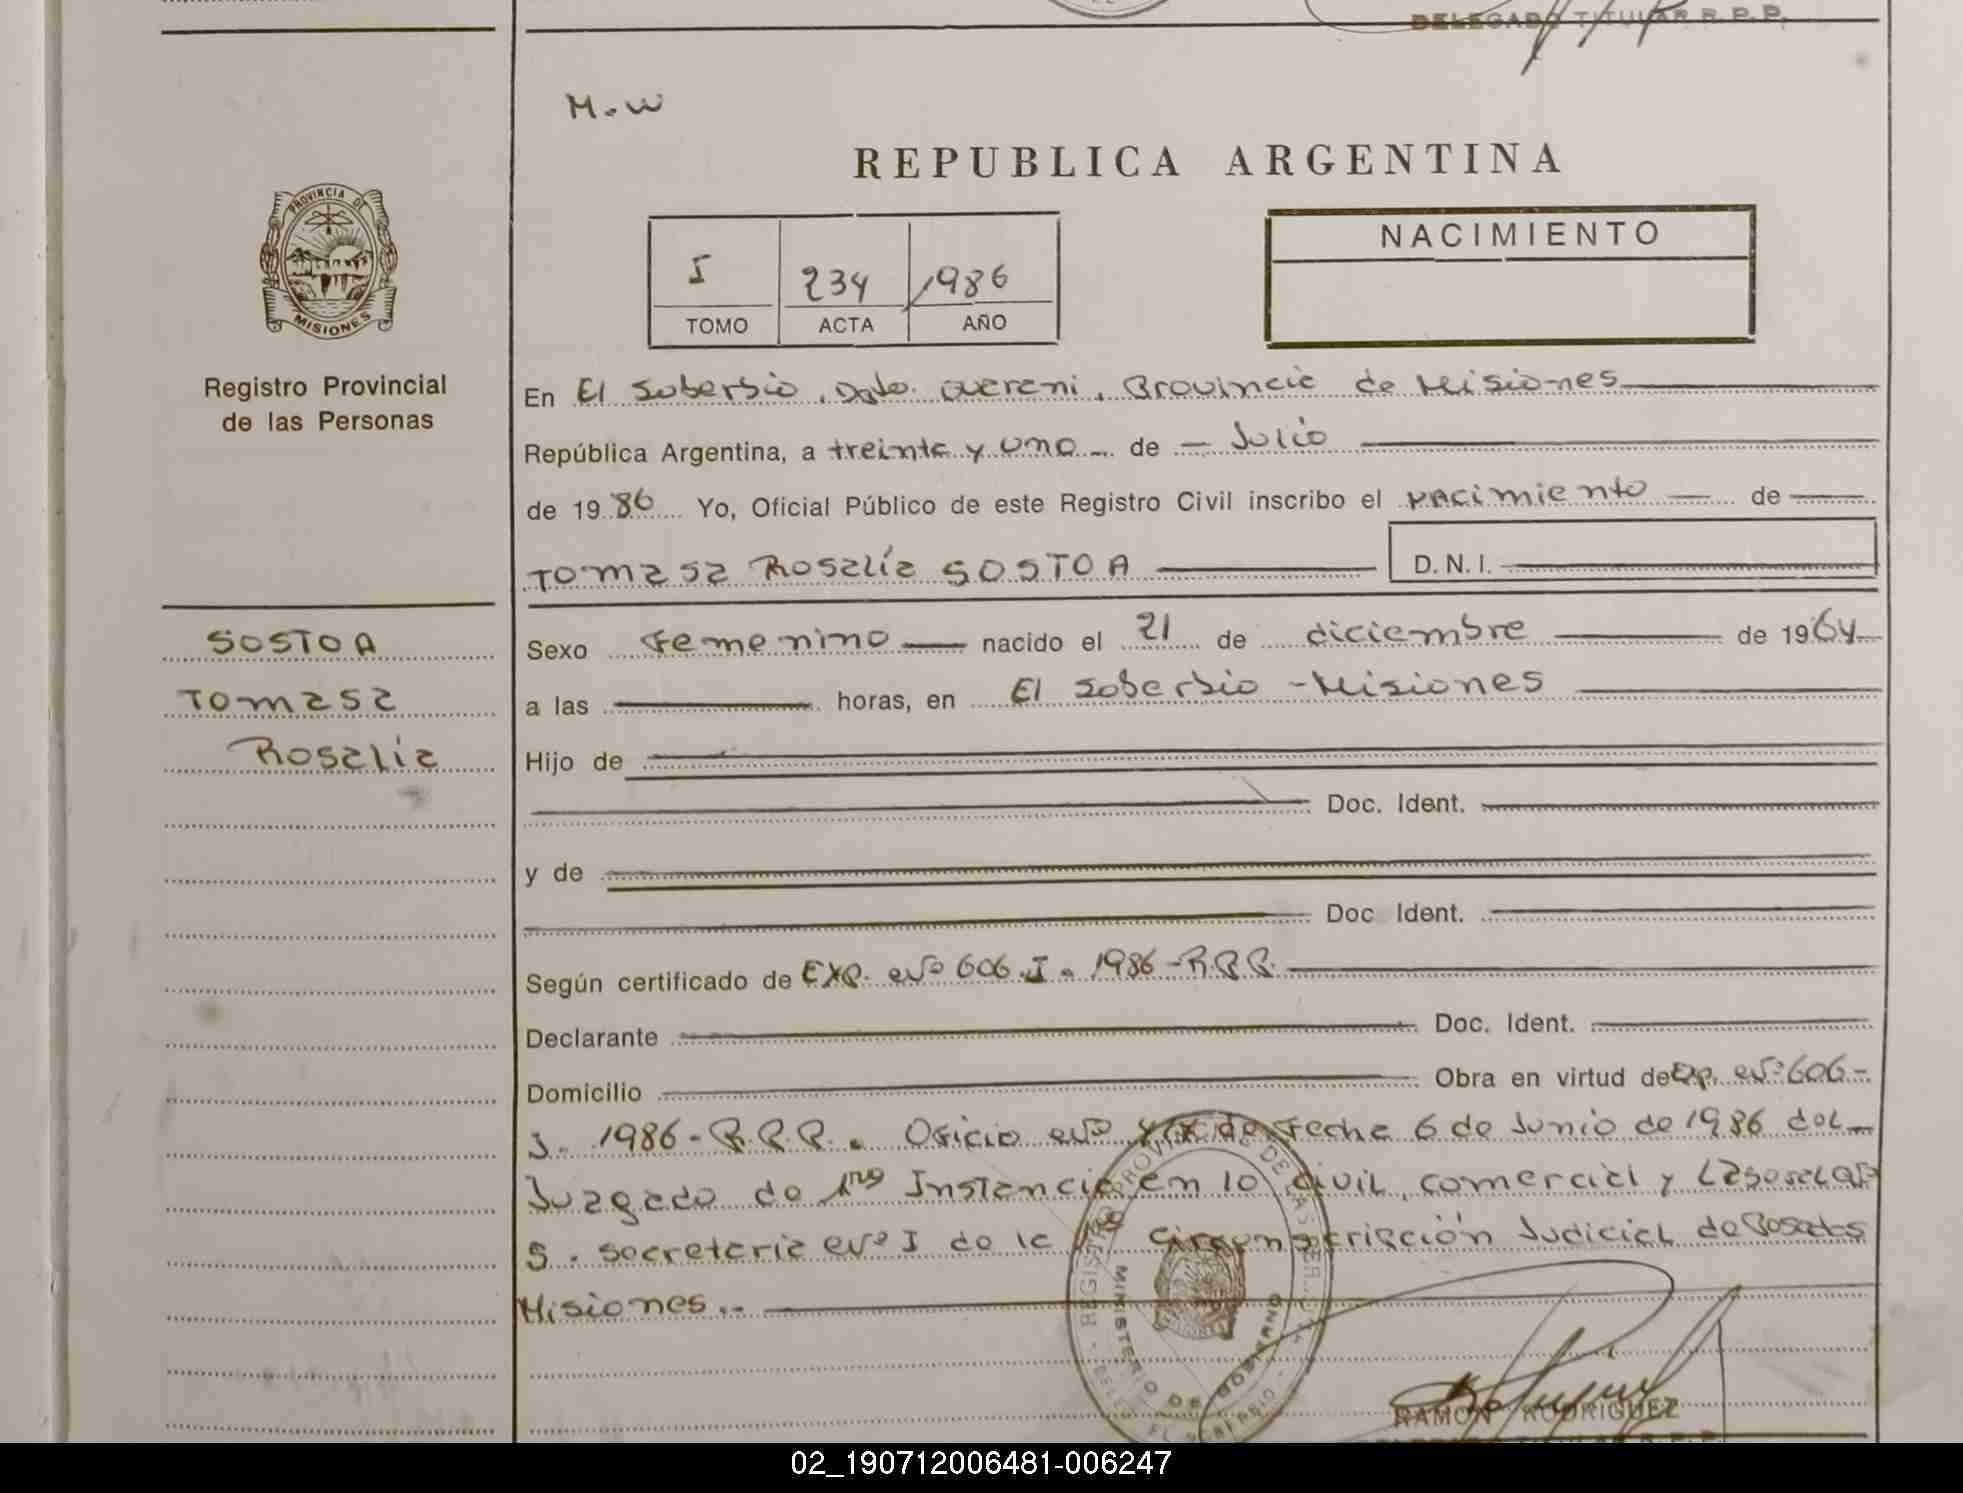 DELEGADO TITULAR R.P.P.
M.W
REPUBLICA ARGENTINA
PROVINCIA DE
MISIONES
Registro Provincial
de las Personas
I 234 1986
TOMO ACTA AÑO
NACIMIENTO
En El Soberbio, Dpto. Guarani, Provincia de Misiones
República Argentina, a treinta y uno de Julio
de 1986 Yo, Oficial Público de este Registro Civil inscribo el nacimiento de
Tomasa Rosalía SOSTOA D.N.I.
SOSTOA
Tomasa
Rosalía
Sexo Femenino nacido el 21 de diciembre de 1964
a las horas, en El Soberbio - Misiones
Hijo de
Doc. Ident.
y de
Doc Ident.
Según certificado de Exp. Nº 606. I. 1986 - R.P.P.
Declarante Doc. Ident.
Domicilio Obra en virtud de Exp. Nº 606-
I. 1986 - R.P.P. Oficio Nº de Fecha 6 de Junio de 1986 del
Juzgado de 1ra Instancia en lo Civil, Comercial y Laboral Nº
5. Secretaria Nº I de la Circunscripción Judicial de Posadas
Misiones.-
MINISTERIO DE GOBIERNO
RAMON RODRIGUEZ
DELEGADO TITULAR R.P.P.
02_190712006481-006247